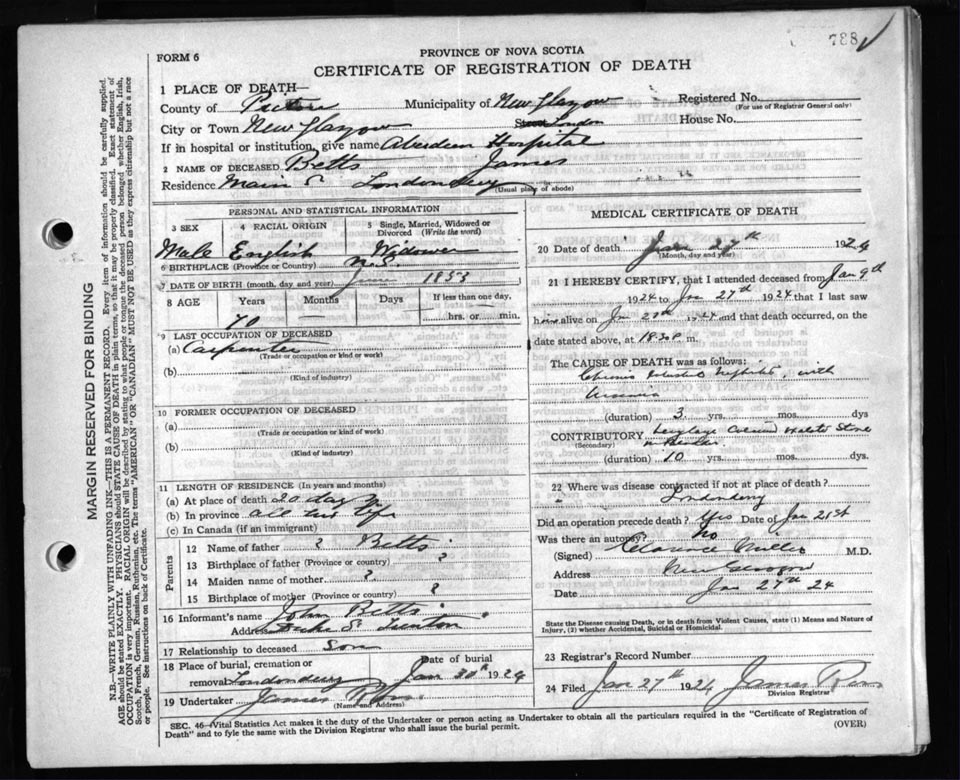 788
FORM 6
PROVINCE OF NOVA SCOTIA
CERTIFICATE OF REGISTRATION OF DEATH
1 PLACE OF DEATH—
County of Pictou Municipality of New Glasgow Registered No.
(For use of Registrar General only)
City or Town New Glasgow Street London House No.
If in hospital or institution, give name Aberdeen Hospital
2 NAME OF DECEASED Betts James
Residence Main St Londonderry
(Usual place of abode)
PERSONAL AND STATISTICAL INFORMATION
3 SEX 4 RACIAL ORIGIN 5 Single, Married, Widowed or Divorced (Write the word)
Male English Widower
6 BIRTHPLACE (Province or Country) N.S.
7 DATE OF BIRTH (month, day and year) June 1853
8 AGE Years Months Days If less than one day,
70 — hrs. or min.
9 LAST OCCUPATION OF DECEASED
(a) Carpenter
(Trade or occupation or kind or work)
(b)
(Kind of industry)
10 FORMER OCCUPATION OF DECEASED
(a)
(Trade or occupation or kind of work)
(b)
(Kind of industry)
11 LENGTH OF RESIDENCE (In years and months)
(a) At place of death 20 days
(b) In province all his life
(c) In Canada (if an immigrant)
Parents
12 Name of father ? Betts
13 Birthplace of father (Province or country) ?
14 Maiden name of mother ?
15 Birthplace of mother (Province or country) ?
16 Informant's name John Betts
Address Duke St Trenton
17 Relationship to deceased Son
18 Place of burial, cremation or removal Londonderry Date of burial Jan 30th 1924
19 Undertaker James
(Name and Address)
MEDICAL CERTIFICATE OF DEATH
20 Date of death Jan 27th 1924
(Month, day and year)
21 I HEREBY CERTIFY, that I attended deceased from Jan 9th
1924 to Jan 27th 1924 that I last saw
him alive on Jan 27th 1924 and that death occurred, on
date stated above, at m.
The CAUSE OF DEATH was as follows:
Chronic Nephritis, with
Uraemia
(duration) 3 yrs. mos. dys
CONTRIBUTORY Stone
(Secondary) in Bladder
(duration) 10 yrs. mos. days
22 Where was disease contracted if not at place of death?
Londonderry
Did an operation precede death? Yes Date of Jan 21st
Was there an autopsy? No
(Signed) Clarence Miller M.D.
Address New Glasgow
Date Jan 27th 24
State the Disease causing Death, or in death from Violent Causes, state (1) Means and Nature of Injury, (2) whether Accidental, Suicidal or Homicidal.
23 Registrar's Record Number
24 Filed Jan 27th 1924 James
Division Registrar
SEC. 46—Vital Statistics Act makes it the duty of the Undertaker or person acting as Undertaker to obtain all the particulars required in the "Certificate of Registration of
Death" and to fyle the same with the Division Registrar who shall issue the burial permit. (OVER)
MARGIN RESERVED FOR BINDING
N.B.—WRITE PLAINLY WITH UNFADING INK—THIS IS A PERMANENT RECORD. Every item of information should be carefully supplied.
AGE should be stated EXACTLY. PHYSICIANS should STATE CAUSE OF DEATH in plain terms, so that it may be properly classified. Exact statement of
OCCUPATION is very important. RACIAL ORIGIN will be described by stating to what people or tongue the deceased person belonged whether English, Irish,
Scotch, French, German, Russian, Ruthenian, etc. The terms "AMERICAN" OR "CANADIAN" MUST NOT BE USED as they express citizenship but not a race
or people. See instructions on back of Certificate.